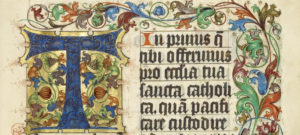 T
In primis q̃
tibi offerimus
pro ecclia tua
sancta catholi
ca, quā pacifi
care custodire